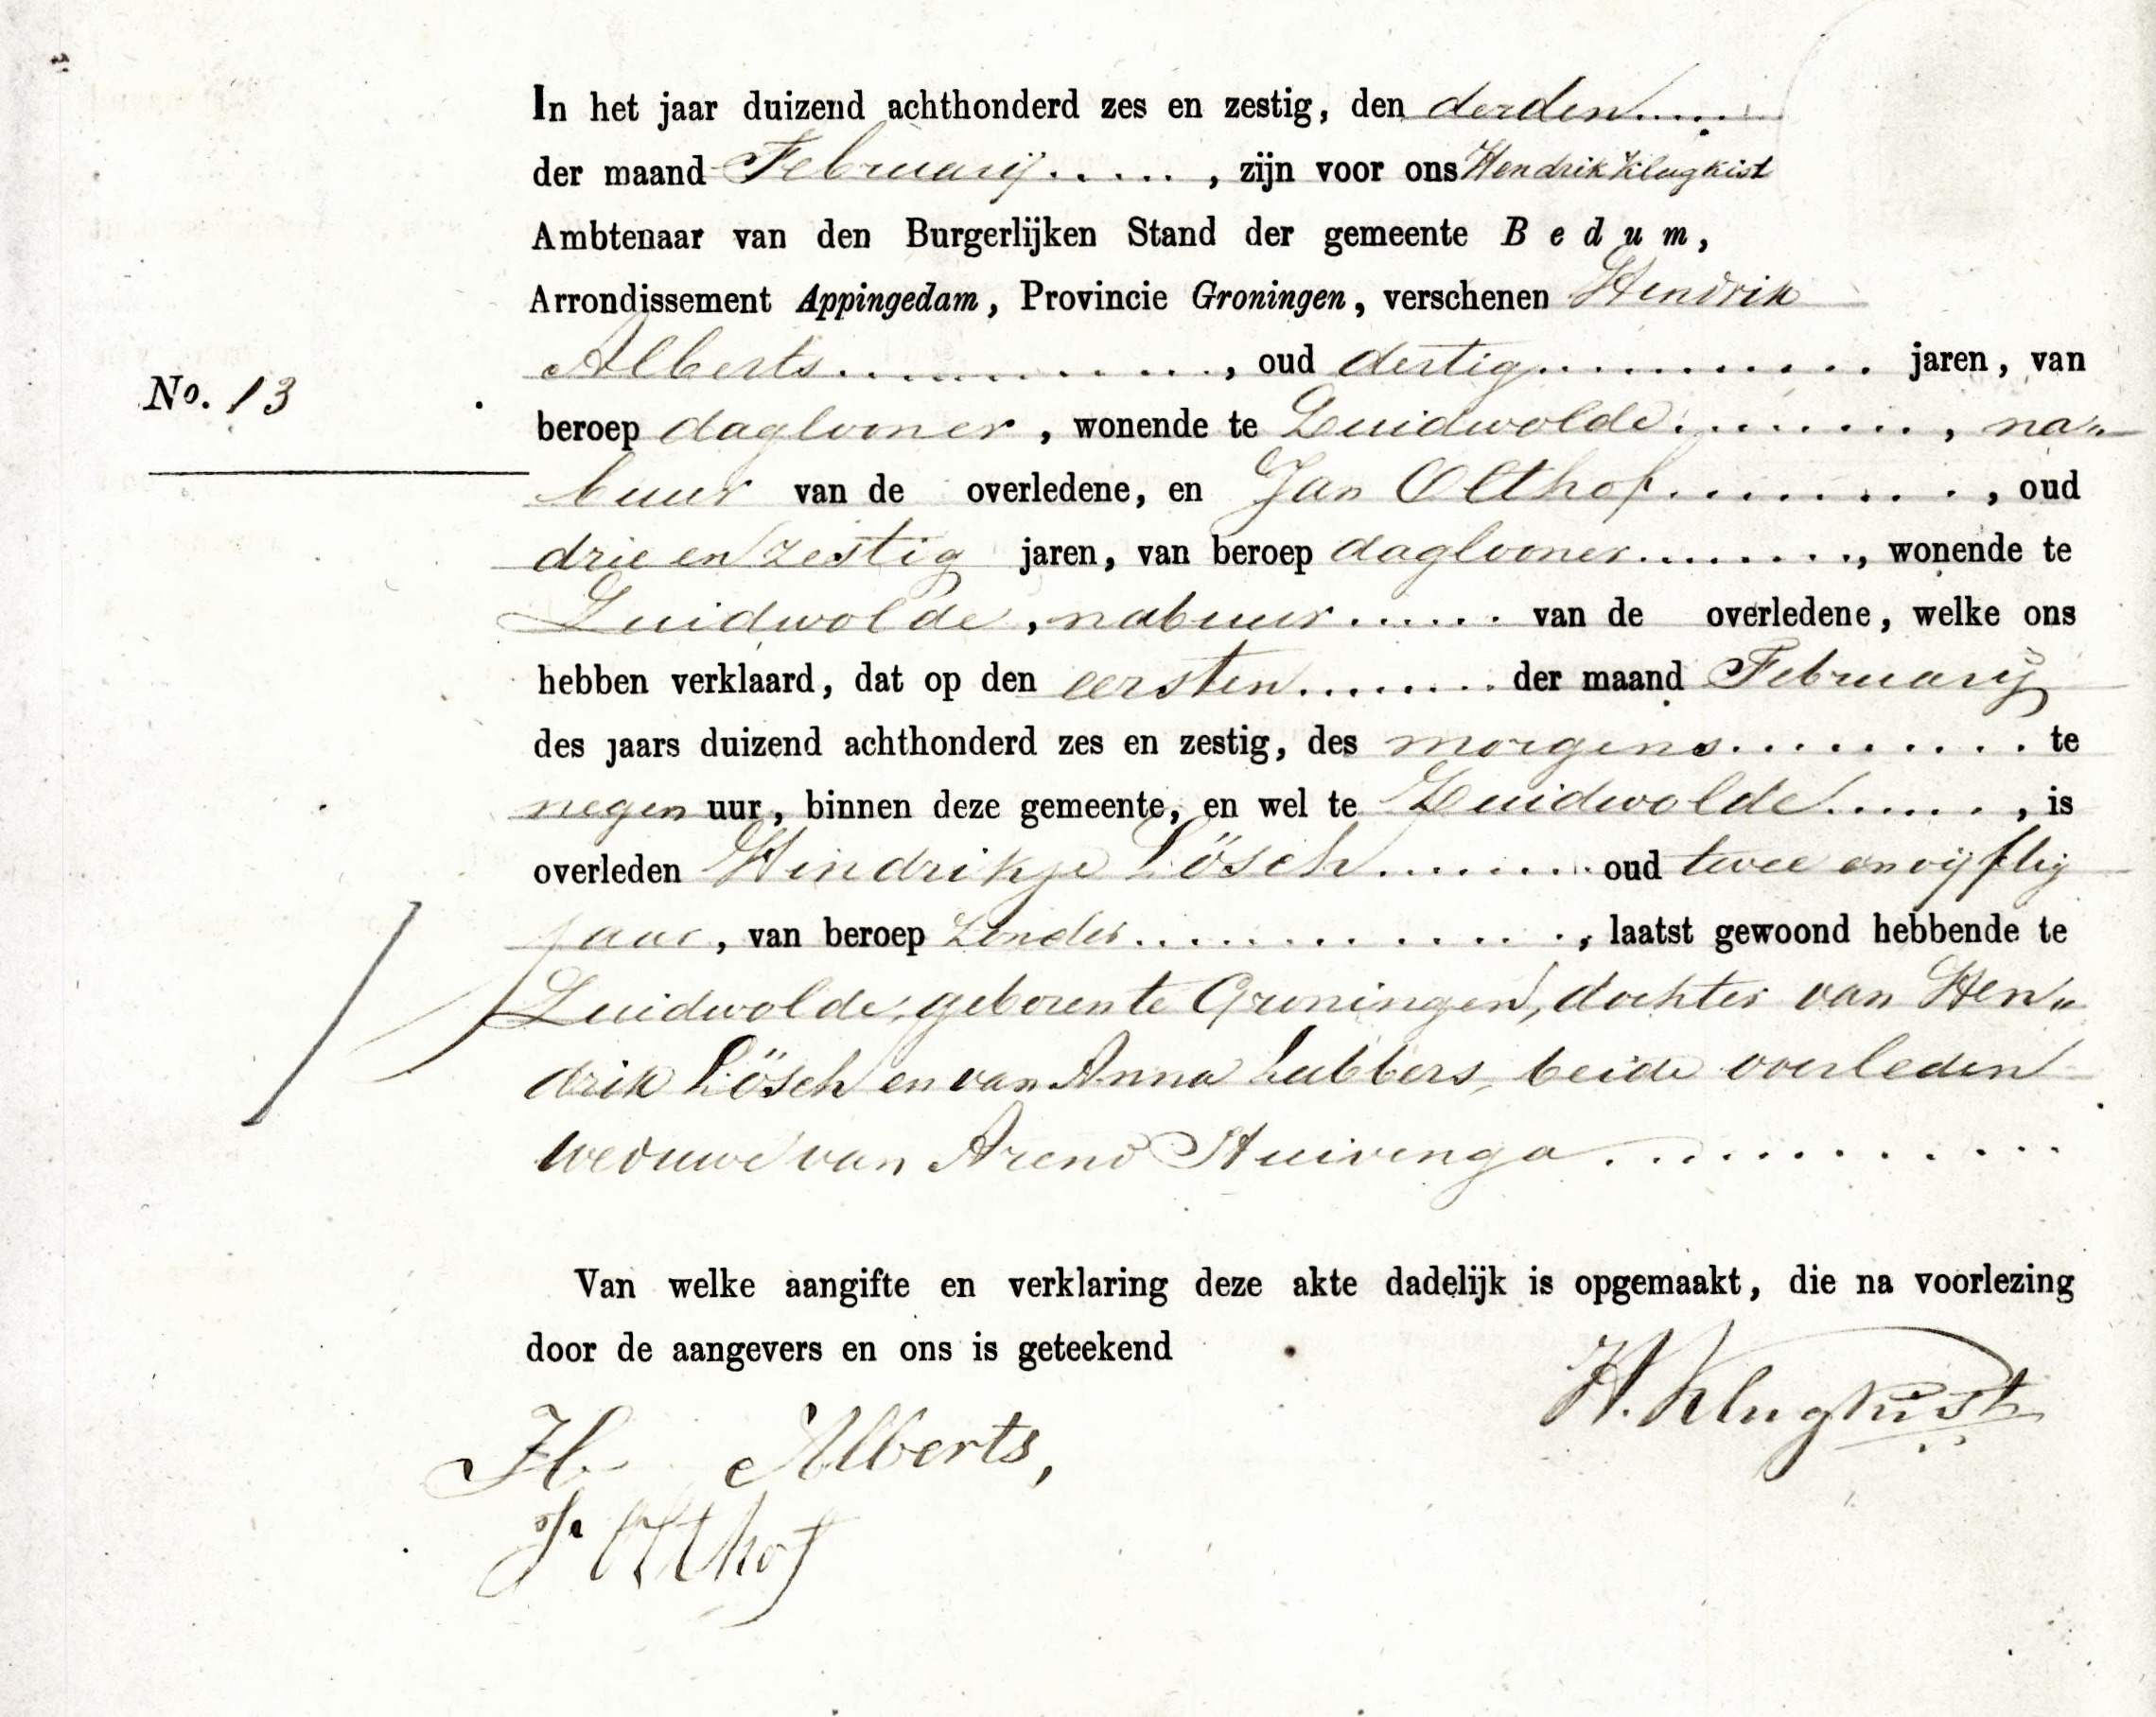 In het jaar duizend achthonderd zes en zestig, den derden.....
der maand Februarij....., zijn voor ons Hendrik Klugkist
Ambtenaar van den Burgerlijken Stand der gemeente Bedum,
Arrondissement Appingedam, Provincie Groningen, verschenen Hendrik
Alberts..........., oud dertig........... jaren, van
No. 13
beroep daglooner, wonende te Zuidwolde........, na„
buur van de overledene, en Jan Olthof........., oud
drie en zestig jaren, van beroep daglooner........, wonende te
Zuidwolde, nabuur...... van de overledene, welke ons
hebben verklaard, dat op den eersten........ der maand Februarij
des jaars duizend achthonderd zes en zestig, des morgens......... te
negen uur, binnen deze gemeente, en wel te Zuidwolde......, is
overleden Hindrikje Lösch........ oud twee en vijftig
jaar, van beroep zonder............., laatst gewoond hebbende te
Zuidwolde, geboren te Groningen, dochter van Hen„
drik Lösch en van Anna Lubbers, beide overleden
weduwe van Arend Huizenga............
Van welke aangifte en verklaring deze akte dadelijk is opgemaakt, die na voorlezing
door de aangevers en ons is geteekend
H. Klugkist
H. Alberts,
J. Olthof